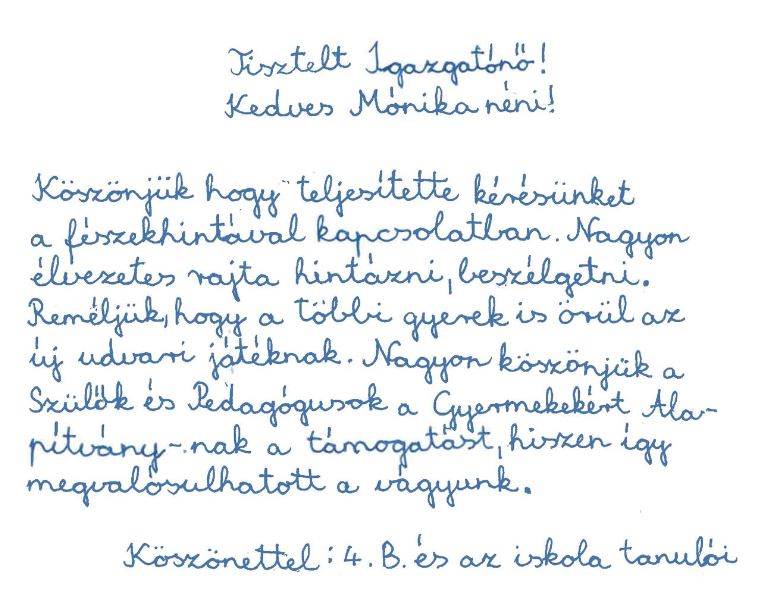 Tisztelt Igazgatónő!
Kedves Mónika néni!
Köszönjük hogy teljesítette kérésünket
a fészekhintával kapcsolatban. Nagyon
élvezetes rajta hintázni, beszélgetni.
Reméljük, hogy a többi gyerek is örül az
új udvari játéknak. Nagyon köszönjük a
Szülők és Pedagógusok a Gyermekekért Ala-
pítvány-nak a támogatást, hiszen így
megvalósulhatott a vágyunk.
Köszönettel: 4. B. és az iskola tanulói